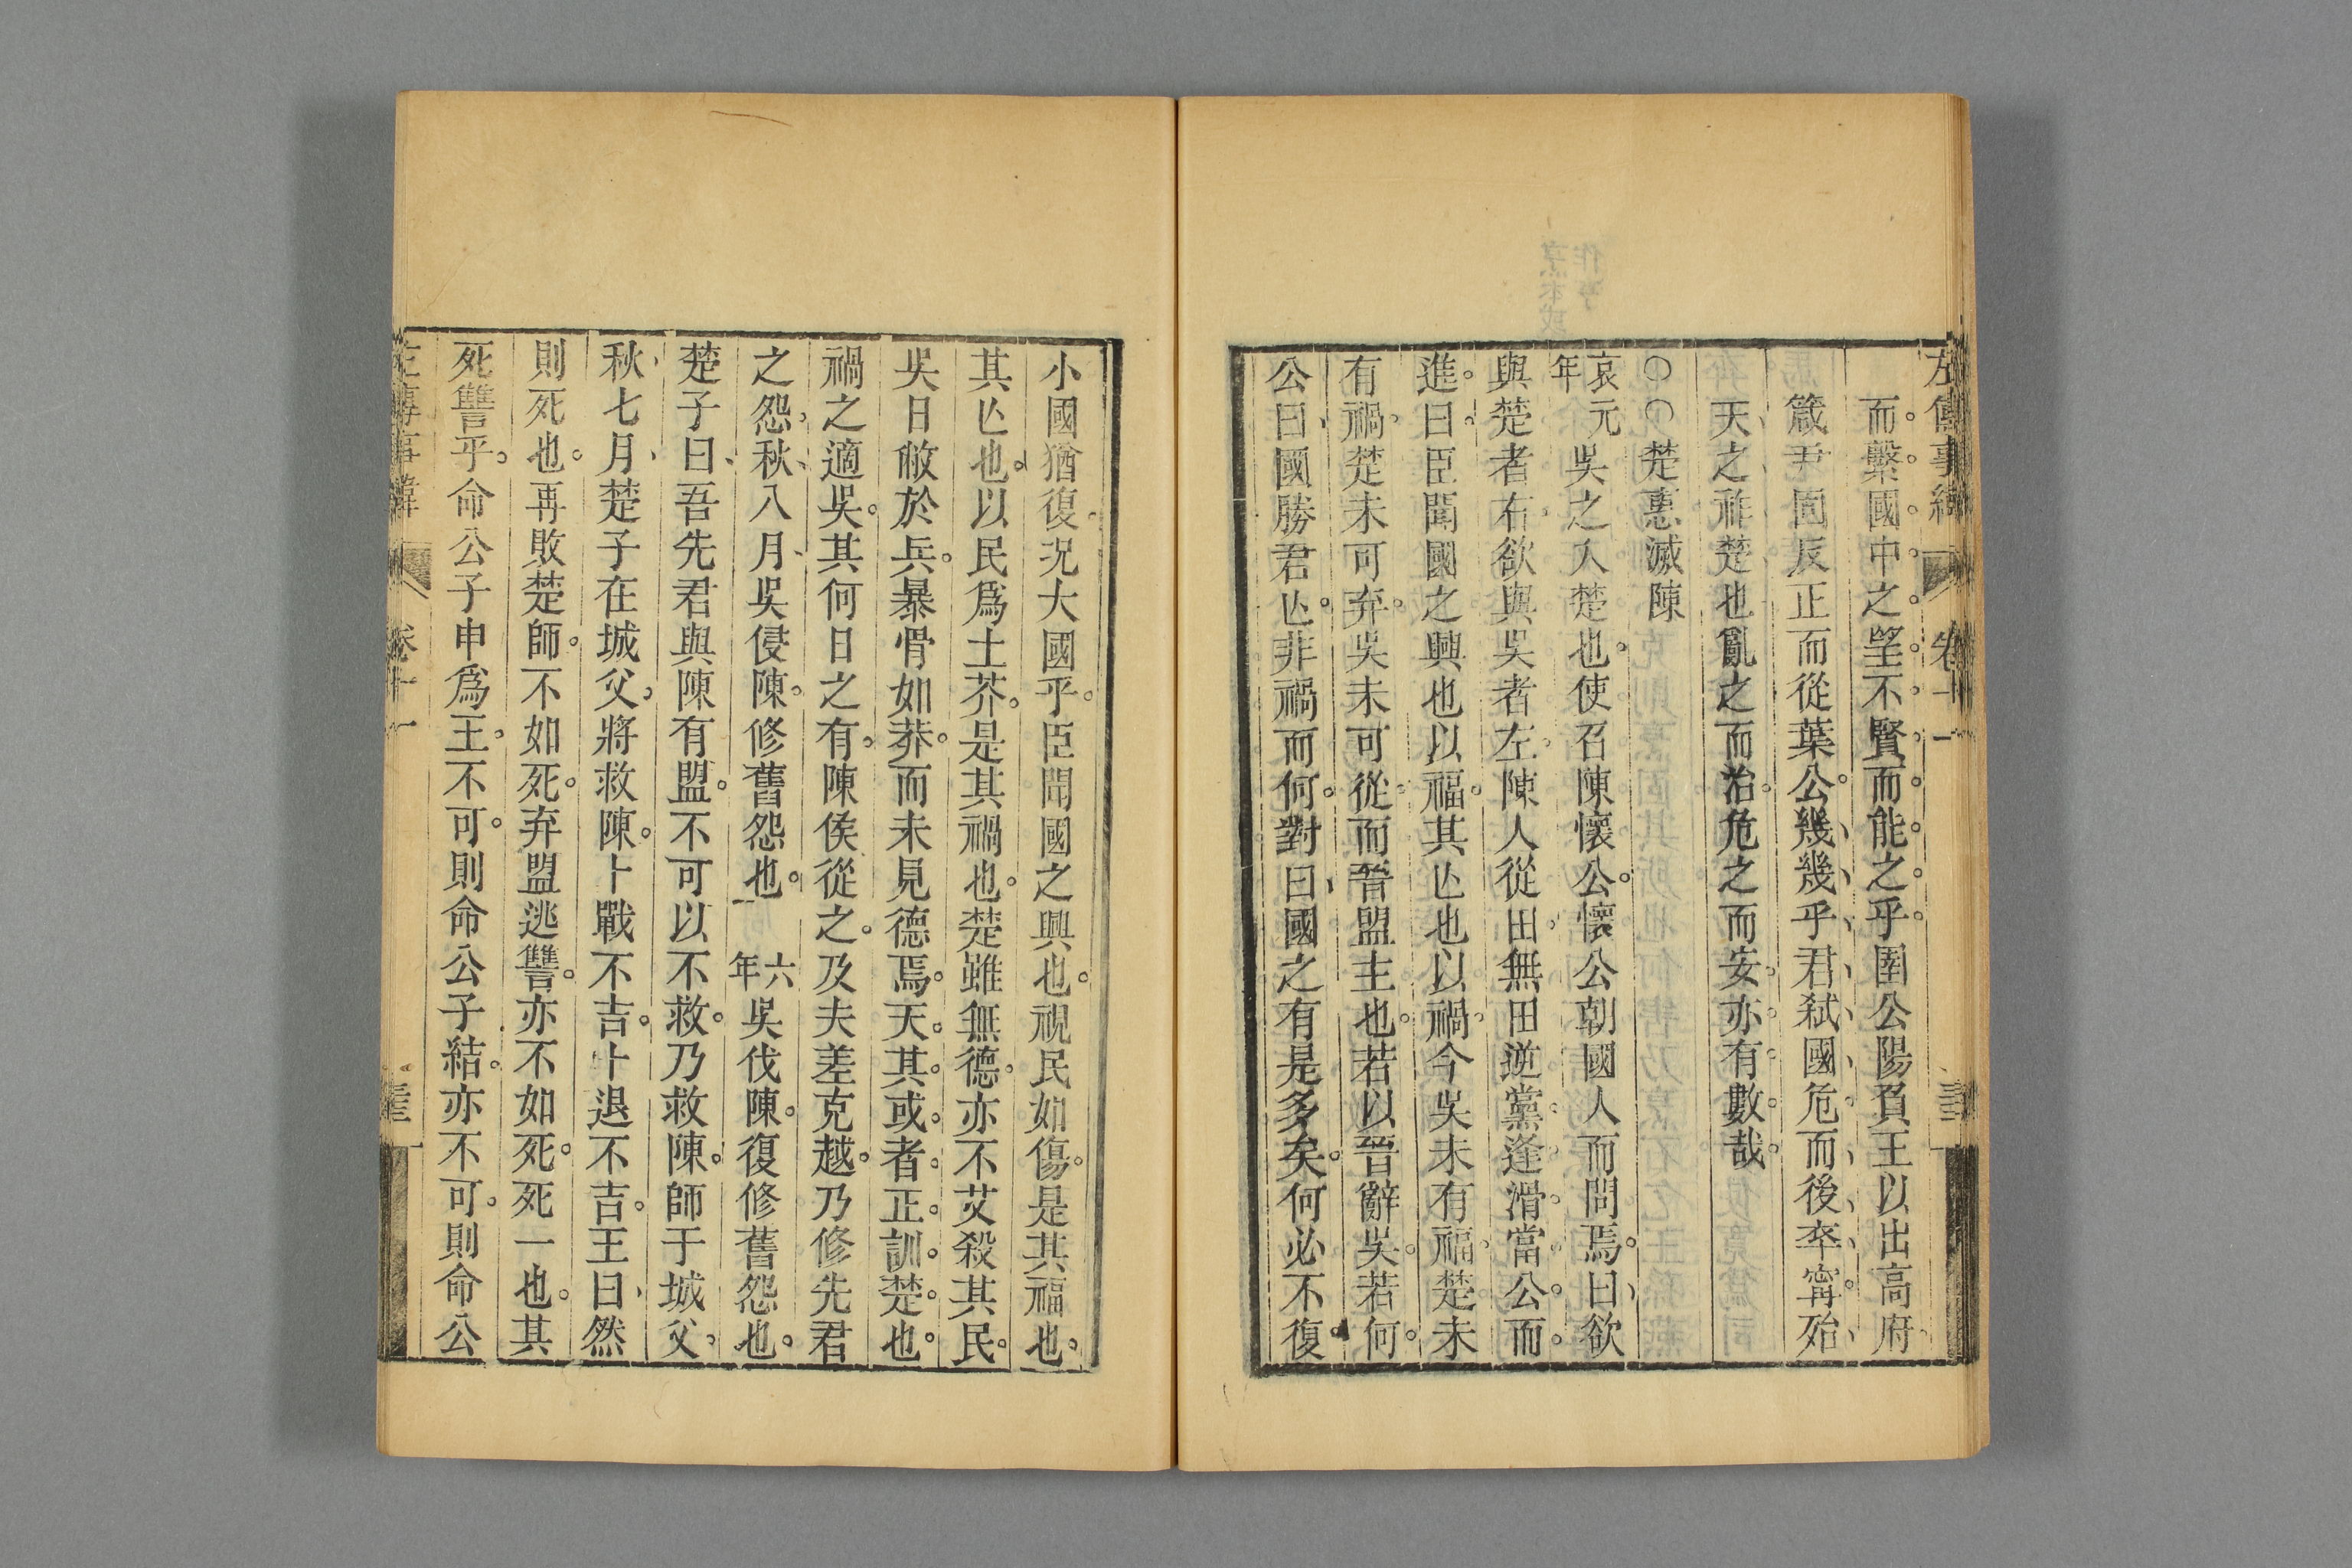 而繫國中之望不賢而能之乎圉公陽負王以出高府
箴尹固反正而從葉公幾幾乎君弑國危而後卒寗殆
天之祚楚也亂之而治危之而安亦有數哉
○○楚惠滅陳
哀元年吳之入楚也使召陳懷公懷公朝國人而問焉曰欲
與楚者右欲與吳者左陳人從田無田逆黨逢滑當公而
進曰臣聞國之興也以福其亾也以禍今吳未有福楚未
有禍楚未可弃吳未可從而晉盟主也若以晉辭吳若何
公曰國勝君亾非禍而何對曰國之有是多矣何必不復
小國猶復況大國乎臣聞國之興也視民如傷是其福也
其亾也以民爲土芥是其禍也楚雖無德亦不艾殺其民
吳日敝於兵暴骨如莽而未見德焉天其或者正訓楚也
禍之適吳其何日之有陳侯從之及夫差克越乃修先君
之怨秋八月吳侵陳修舊怨也 六年吳伐陳復修舊怨也
楚子曰吾先君與陳有盟不可以不救乃救陳師于城父
秋七月楚子在城父將救陳卜戰不吉卜退不吉王曰然
則死也再敗楚師不如死弃盟逃讐亦不如死死一也其
死讐乎命公子申爲王不可則命公子結亦不可則命公
左傳事緯 卷十一